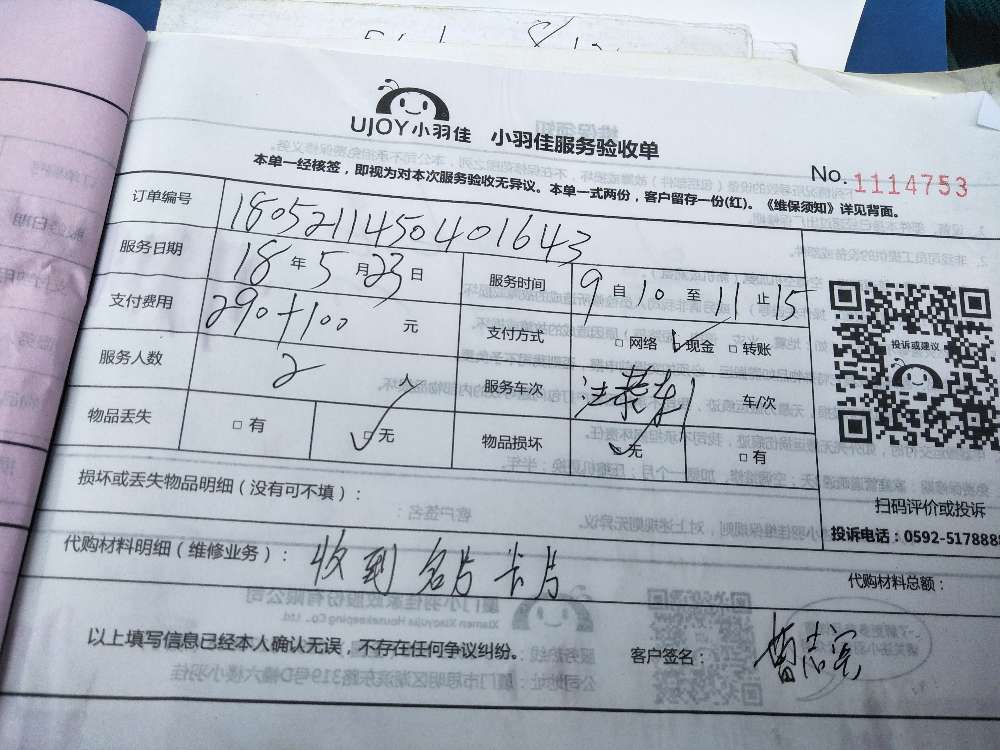 UJOY小羽佳 小羽佳服务验收单
No. 1114753
本单一经核签，即视为对本次服务验收无异议。本单一式两份，客户留存一份(红)。《维保须知》详见背面。
订单编号 1805211450401643
服务日期 18 年 5 月 23 日 服务时间 9 自 10 至 11 止 15
支付费用 290+100 元 支付方式 □ 网络 □ 现金 □ 转账
服务人数 2 人 服务车次 车/次
物品丢失 □ 有 □ 无 物品损坏 □ 无 □ 有
投诉或建议
扫码评价或投诉
投诉电话：0592-5178888
损坏或丢失物品明细（没有可不填）：
代购材料明细（维修业务）： 收到 名片 卡片 代购材料总额：
以上填写信息已经本人确认无误，不存在任何争议纠纷。 客户签名：